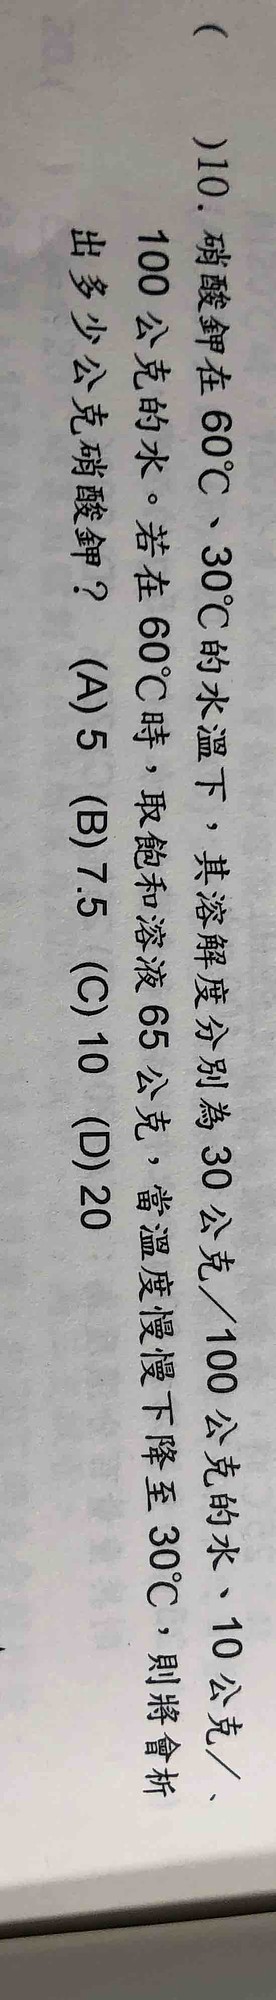 (　　)10. 硝酸鉀在 60℃、30℃的水溫下，其溶解度分別為 30 公克／100 公克的水、10 公克／
100 公克的水。若在 60℃時，取飽和溶液 65 公克，當溫度慢慢下降至 30℃，則將會析
出多少公克硝酸鉀？　(A) 5　(B) 7.5　(C) 10　(D) 20